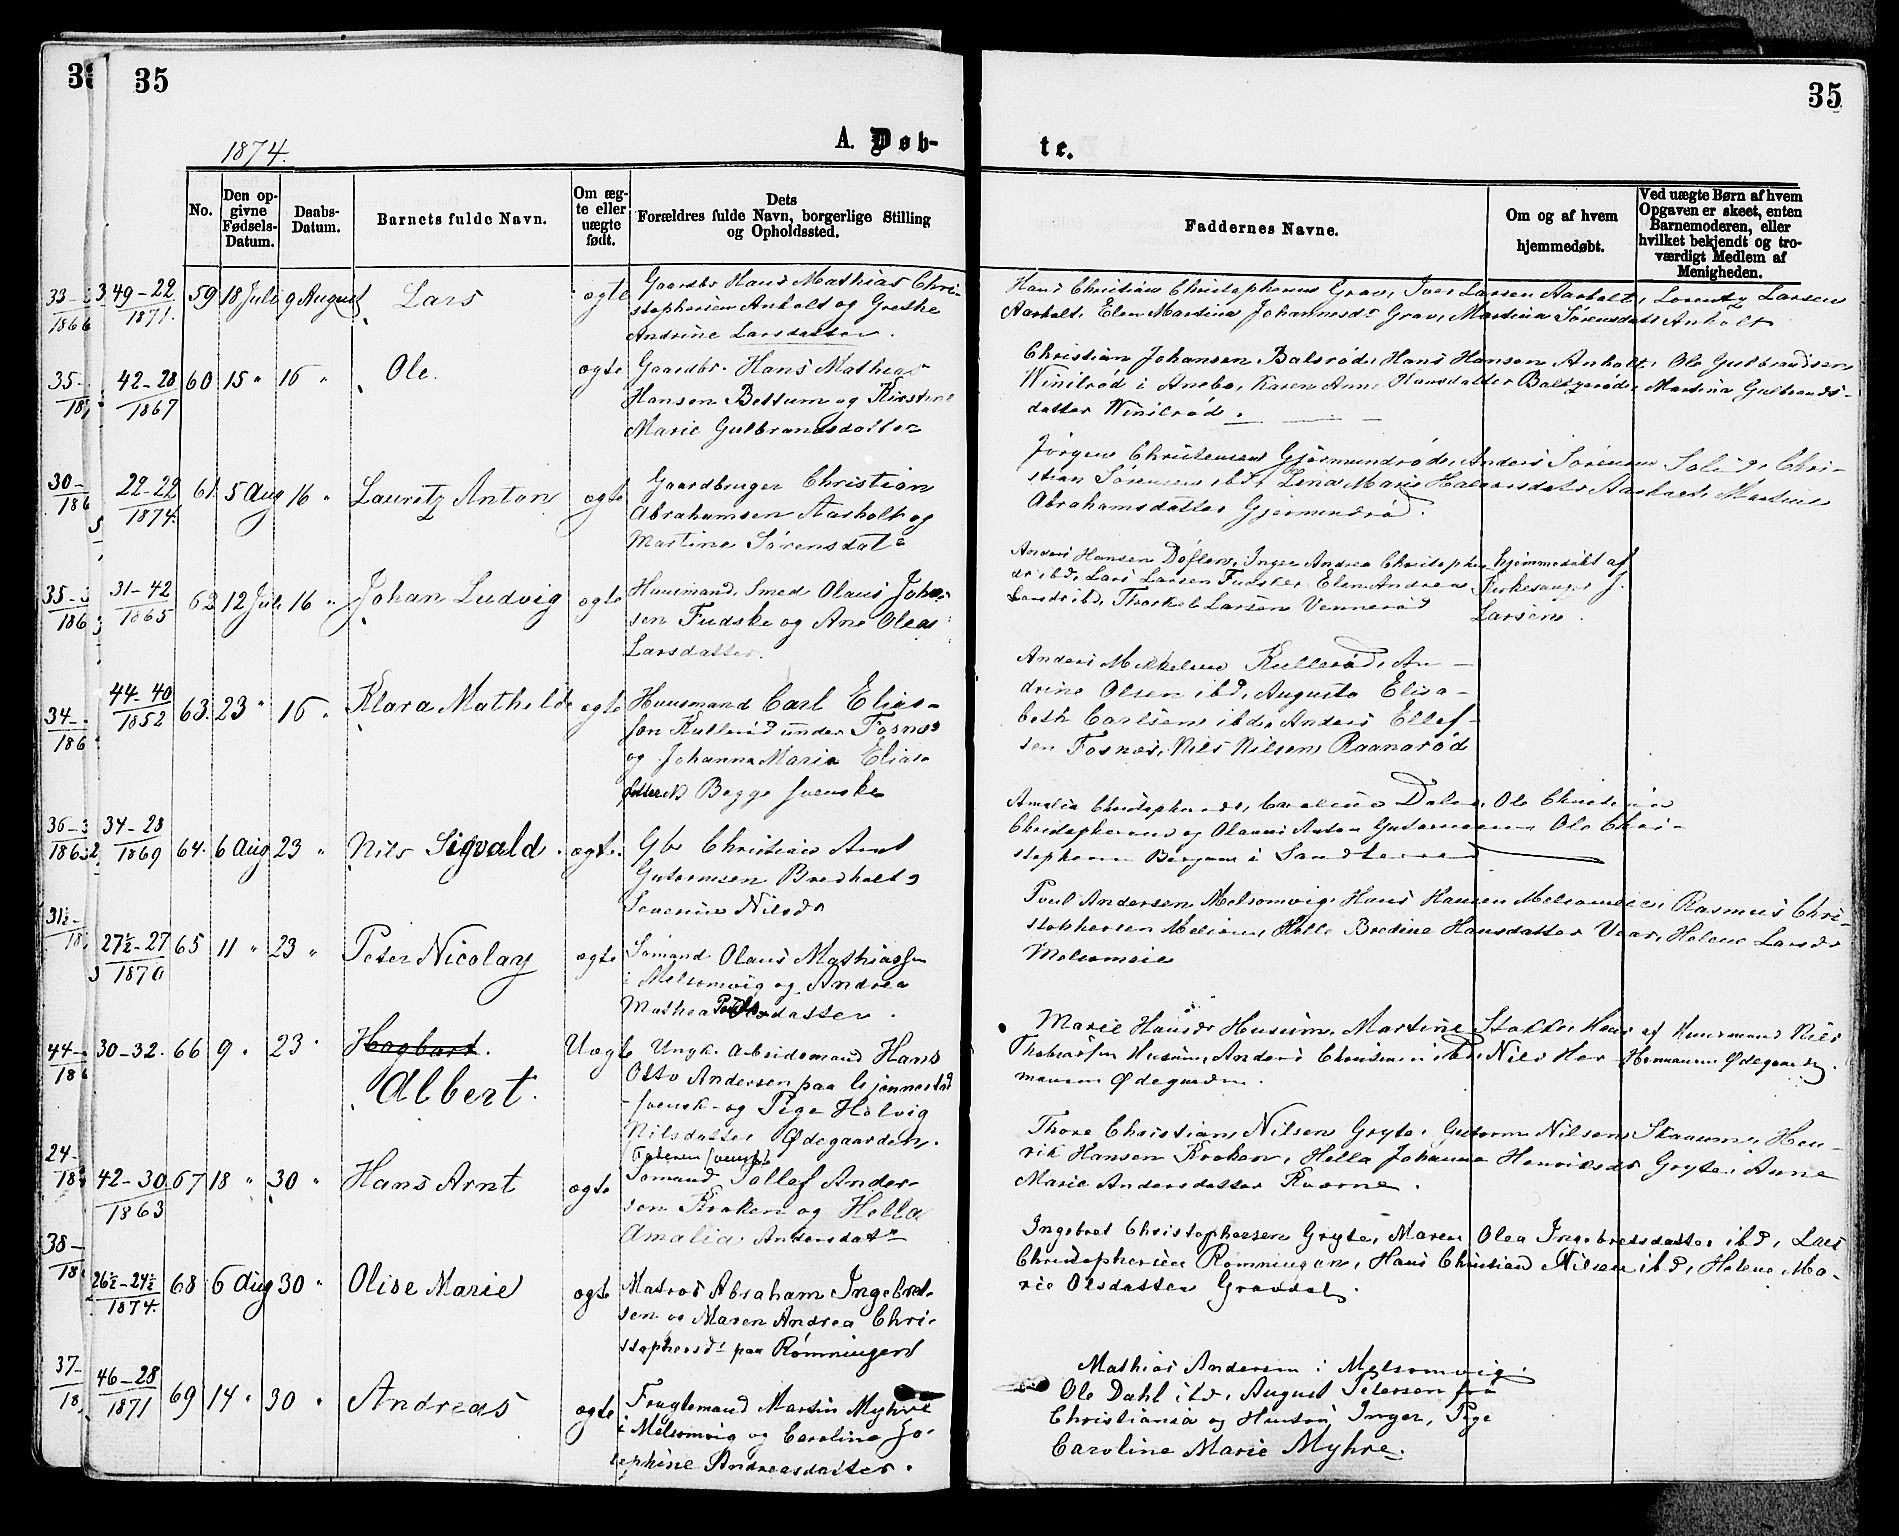 35
35
1874.
A. Døb-
te.
No.
Den op-
givne
Fødsels-
Datum.
Daabs-
Datum.
Barnets fulde Navn.
Om æg-
te eller
uægte
født.
Dets
Forældres fulde Navn, borgerlige Stilling
og Opholdssted.
Faddernes Navne.
Om og af hvem
hjemmedøbt.
Ved uægte Børn af hvem
Opgaven er skeet, enten
Barnemoderen, eller
hvilket bekjendt og tro-
værdigt Medlem af
Menigheden.
49-22
1871.
59 18 Juli 9 August Lars ægte
Gaardbr Hans Mathias Chri-
stophersen Anholt og Grethe
Andrine Larsdatter.
Hans Christian Christophersen Grav, Iver Larsen Aasholt, Lorentz Larsen
Aasholt, Elen Martina Johannesdr Grav, Martina Sørensdatr Anholt
42-28
1867
60 15 " 16 " Ole. ægte
Gaardbr. Hans Mathias
Hansen Bettum og Kirstine
Marie Gulbrandsdatter
Christian Johansen Balsrød, Hans Hansen Anholt, Ole Gulbrandsen
Winilrød i Anebo, Karen Anne Hansdatter Balsgerød, Martina Gulbrands-
datter Winilrød.
22-22
1874.
61. 5 Aug 16 " Lauritz Anton ægte
Gaardbruger Christian
Abrahamsen Aasholt og
Martine Sørensdatr
Jørgen Christensen Gjermundrød, Anders Sørensen Solid, Chri-
stian Sørensen ibd, Lena Marie Halvorsdatr Aasholt, Martine
Abrahamsdatter Gjermundrød.
31-42
1865
62 12 Juli 16 " Johan Ludvig ægte
Huusmand, Smed Olaus Johan-
sen Fudske og Ane Olea
Larsdatter.
Anders Hansen Døflen, Inger Andrea Christophers-
dr ibd, Lars Larsen Fudske, Elen Andrea
Larsdr ibd, Thorkel Larsen Vennerød
hjemmedøbt af
Kirkesanger J.
Larsen.
44-40
1852
63. 23 " 16 " Klara Mathilde ægte
Huusmand Carl Elias-
sen Kullerød under Fosnes
og Johanna Maria Elias-
datter Begge svenske
Anders Mikkelsen Kullerød, An-
drine Olsen ibd, Augusta Elisa-
beth Carlsen ibd, Anders Ellef-
sen Fosnes, Nils Nilsen Raanerød
34-28
1869
64. 6 Aug 23 " Nils Sigvald. ægte.
Gb Christian Arnt
Gutormsen Bredholt og
Severine Nilsdr
Amalia Christophersdr, Dale, Ole Christian
Christophersen og Olaus Anton Gutormsen Ole Chri-
stophersen Bergan i Sandeherred
27½-27
1870
65 11 " 23 " Peter Nicolay ægte
Sømand Olaus Mathiassen
i Melsomvig og Andrea
Mathea Poulsdatter.
Poul Andersen Melsomvig, Hans Hansen Melsomvig, Rasmus Chri-
stophersen Melsom, Helle Bredine Hansdatter Vear, Helene Larsdr
Melsomvig
30-32. 66 9 " 23 " Hagbart.
Albert.
Uægte
Ungk. Arbeidsmand Hans
Otto Andersen paa Gjennestad
- svensk - og Pige Helvig
Nilsdatter Ødegaarden.
Faderen svensk
Marie Hansdr Husum, Martine Stokke, Hans
Thobiassen Husum, Anders Christensen ibd, Nils Her-
mansen Ødegaarden.
af Huusmand Nils
Hermansen Ødegaarden.
42-30
1863
67 18 " 30 " Hans Arnt ægte
Sømand Tollef Ander-
sen Kroken og Hella
Amalia Andersdatr
Thore Christian Nilsen Gryte, Gutorm Nilsen Skaaum, Hen-
rik Hansen Kroken, Hella Johanne Henriksdr Gryte, Anne
Marie Andersdatter Kværne.
26½-24½
1874.
68 6 Aug 30 " Olise Marie ægte
Matros Abraham Ingebret-
sen og Maren Andrea Chri-
stophersdr paa Rømningen
Ingebret Christophersen Gryte, Maren Olea Ingebretsdatter ibd, Lars
Christophersen Rømningen, Hans Christian Nilsen ibd, Helene Ma-
rie Olsdatter Gravdal.
46-28
1871
69 14 " 30 " Andreas ægte
Fragtemand Martin Myhre
i Melsomvig og Caroline Jo-
sephine Andreasdatter.
Mathias Andersen i Melsomvig.
Ole Dahl ibd, August Petersen fra
Christiania og Hustru Inger, Pige
Caroline Marie Myhre.